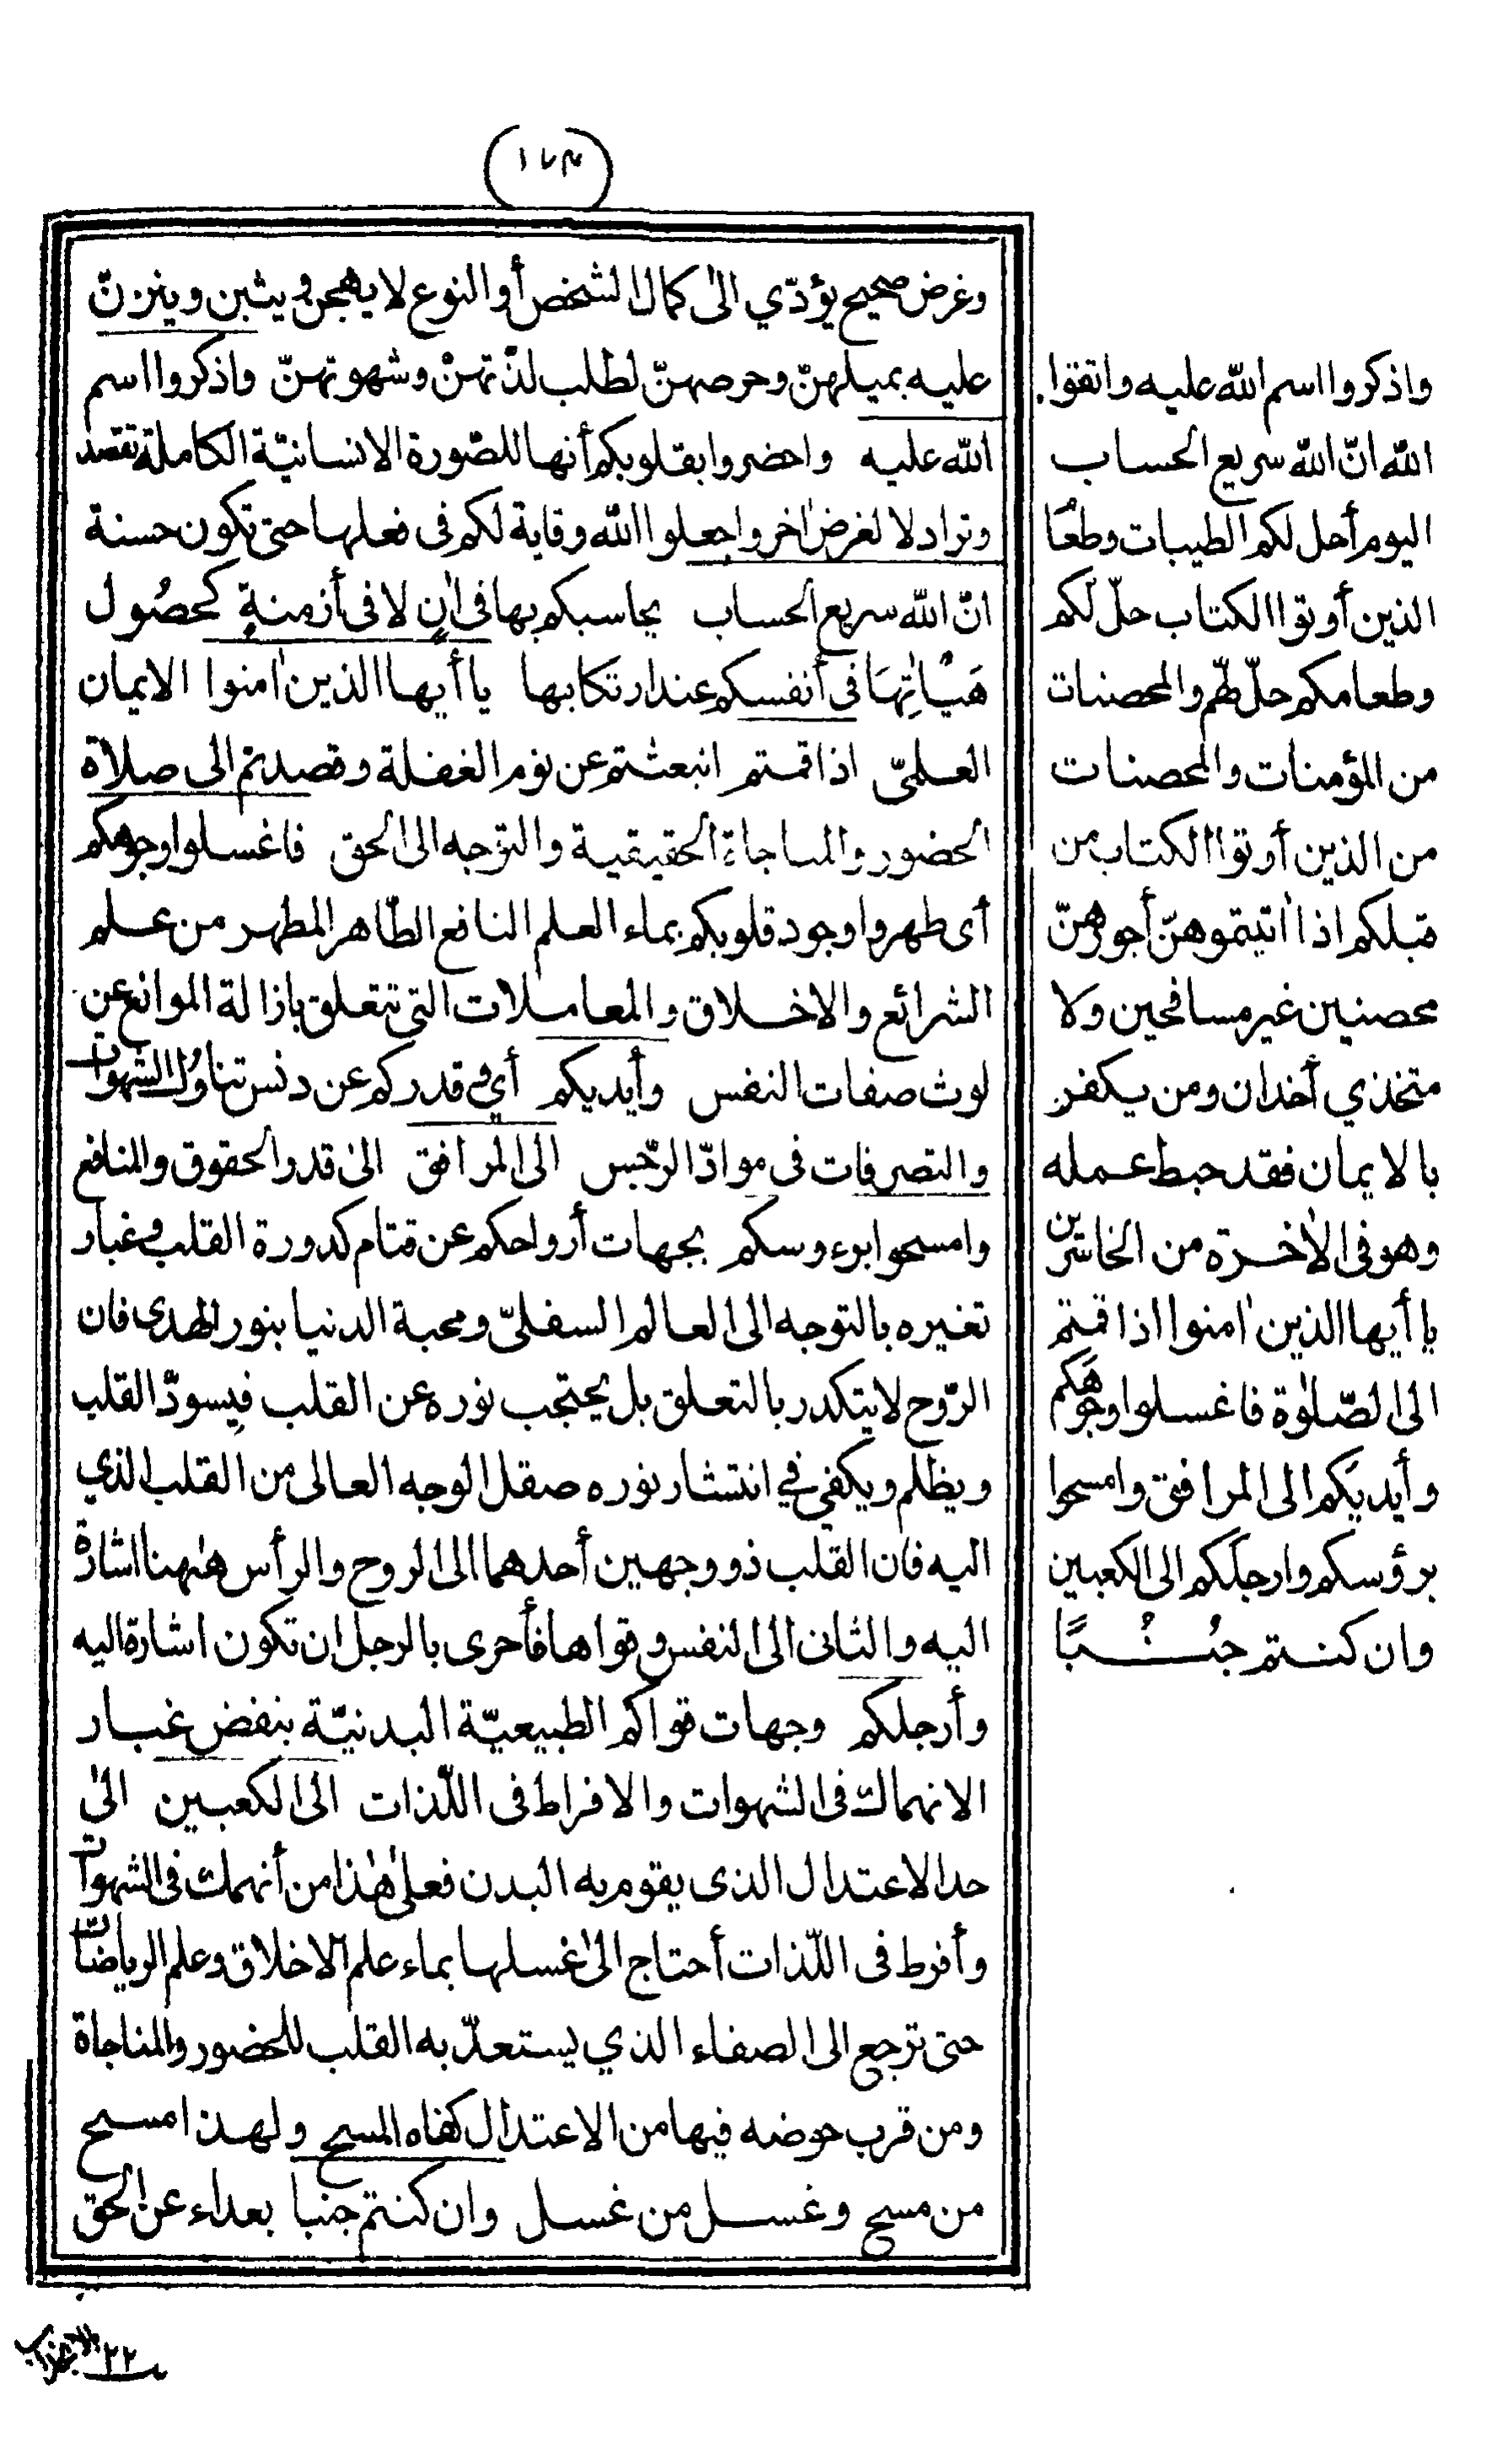 (١٧٣)
وغرض صحيح يؤدّي الىٰ كمال الشخص أو النوع لا يهجن ويثبن وينزنّ
عليه بميلهنّ وحرصهنّ لطلب لذّتهنّ وشهوتهنّ واذكروا اسم
الله عليه واحضروا بقلوبكم أنها للصّورة الانسانيّة الكاملة تقصد
وتراد لا لغرض اٰخر واجعلوا الله وقاية لكم فى فعلها حتى تكون حسنة
انّ الله سريع الحساب يحاسبكم بها فى اٰنٍ لا فى أزمنةٍ كحصُول
هَيْاٰتِهَا فى أنفسكم عند ارتكابها يا أيها الذين اٰمنوا الايمان
العلمىّ اذا قمتم انبعثتم عن نوم الغفلة وقصدتم الى صلاة
الحضور والمناجاة الحقيقية والتوجه الى الحق فاغسلوا وجوهكم
أى طهروا وجود قلوبكم بماء العلم النافع الطّاهر المطهر من علم
الشرائع والاخلاق والمعاملات التى تتعلق بازالة الموانع عن
لوث صفات النفس وأيديكم أي قدركم عن دنس تناوُل الشهوات
والتصرفات فى موادّ الرّجس الى المرافق الىٰ قدر الحقوق والمنافع
وامسحوا برءوسكم بجهات أرواحكم عن قتام كدورة القلب وغبار
تغيره بالتوجه الى العالم السفلىّ ومحبة الدنيا بنور الهدى فان
الرّوح لا يتكدر بالتعلق بل يحتجب نوره عن القلب فيسودّ القلب
ويظلم ويكفي في انتشار نوره صقل الوجه العالى من القلب الذي
اليه فان القلب ذو وجهين أحدهما الى الروح والرأس هٰهنا اشارة
اليه والثانى الى النفس وقواها فأحرى بالرجل ان تكون اشارة اليه
وأرجلكم وجهات قواكم الطبيعيّة البدنيّة بنفض غبار
الانهماك فى الشهوات والافراط فى اللّذات الى الكعبين الىٰ
حد الاعتدال الذى يقوم به البدن فعلىٰ هٰذا من أنهمك فى الشهوات
وأفرط فى اللّذات أحتاج الىٰ غسلها بماء علم الاخلاق وعلم الرياضات
حتى ترجع الى الصفاء الذي يستعدّ به القلب للحضور والمناجاة
ومن قرب خوضه فيها من الاعتدال كفاه المسح ولهذا مسح
من مسح وغسل من غسل وان كنتم جنبا بعداء عن الحق
واذكروا اسم الله عليه واتقوا
الله انّ الله سريع الحساب
اليوم أحل لكم الطيبات وطعٰا
الذين أوتوا الكتاب حلّ لكم
وطعامكم حلّ لهّم والمحصنات
من المؤمنات والمحصنات
من الذين أوتوا الكتاب من
قبلكم اذا اٰتيتموهنّ أجورهنّ
محصنين غير مسافحين ولا
متخذي أخدان ومن يكفر
بالايمان فقد حبط عمله
وهو فى الاٰخرة من الخاسرين
يا أيها الذين اٰمنوا اذا قمتم
الى الصّلوٰة فاغسلوا وجوهَكم
وأيديَكم الى المرافق وامسحوا
برؤسكم وارجلَكم الى الكعبين
وان كنتم جُنُبًا
٢٢